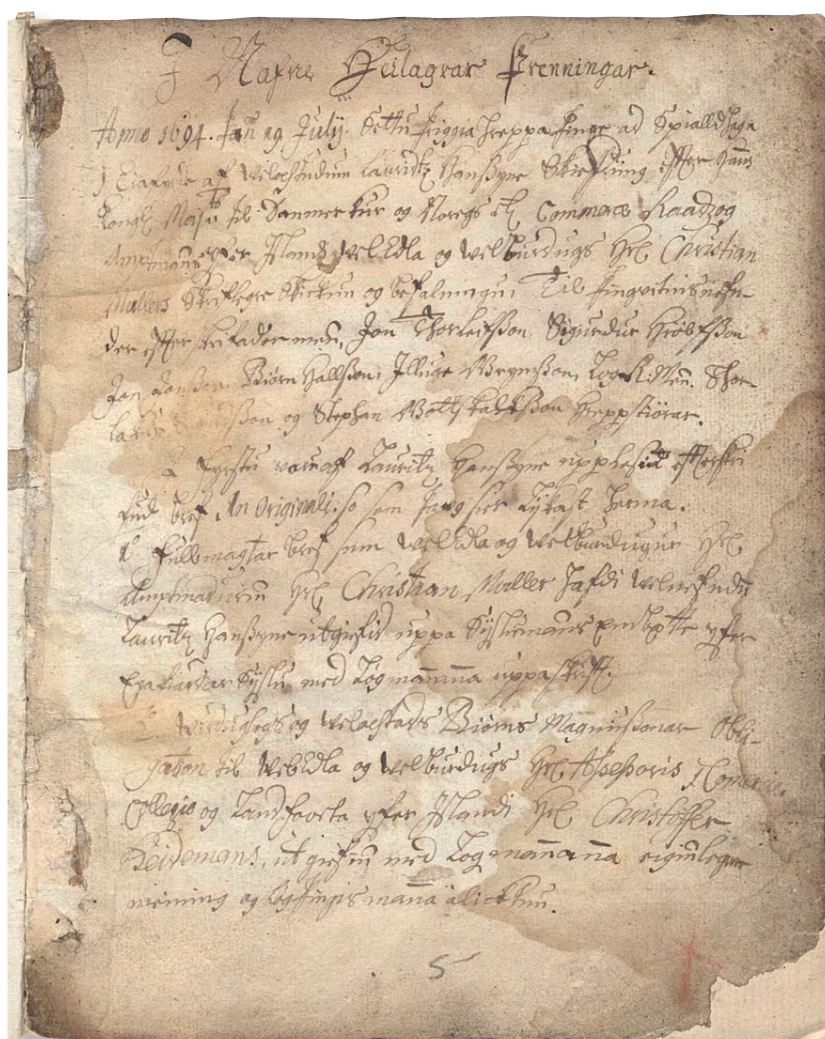 J Nafne Heilagrar Þrenningar.
Anno 1694. þan 19 Julij. Settu þriggia hreppa þinge ad Spialldhaga
J Eiafyrde af velachtudum Lauritz Hanßyne Skiefving epter hans
kongl Maj til Danmerkur og Noregs &c Commerce Raadz og
Amptmans yfer Jslande velEdla og velburdugs Hrl Christian
Mullers Skriflegre Skickun og befalningu, Til þingvitnis nefn-
der epterskrifader menn, Jon Thorleifßon Sigurdur Hrolfßon
Jon Jonßon Biörn Hallßon, Jlluge Brynjßon, Lögr.menn. Thor-
lakur ßon og Stephan Bottskalkßon hreppstiórar.
Fyrstu var af Lauritz Hanßyne upplesid epterskri
fud bref Jn Originali so sem þaug sier lykast herma.
1° Fullmagtar bref sem velEdla og velburdugur Hrl
Amptmadurinn Hrl Christian Muller hafdi velnefndum
Lauritz Hanßyne utgiefid uppa Syslumans embætte yfer
Vadlasyslu med lögmanna uppaskrift.
og velachtads Biörns Magnußonar Obli-
gation til velEdla og velburdugs Hrl Aßeßoris J Comercie
Collegio og Landfoveta yfer Jslandi Hrl Christofer
Heidemans, utgiefin med Lögmannanna eiginlegre
meining og lögþingismanna álicktun.
5